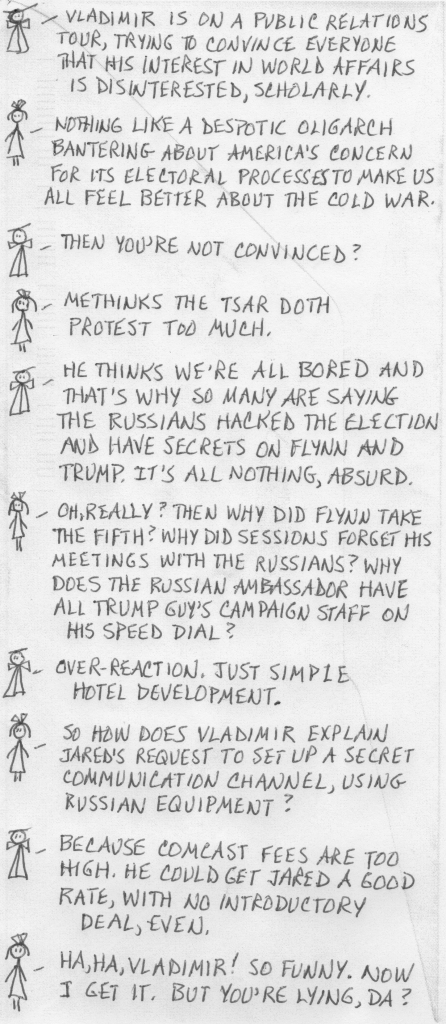 VLADIMIR IS ON A PUBLIC RELATIONS
TOUR, TRYING TO CONVINCE EVERYONE
THAT HIS INTEREST IN WORLD AFFAIRS
IS DISINTERESTED, SCHOLARLY.
NOTHING LIKE A DESPOTIC OLIGARCH
BANTERING ABOUT AMERICA'S CONCERN
FOR ITS ELECTORAL PROCESSES TO MAKE US
ALL FEEL BETTER ABOUT THE COLD WAR.
THEN YOU'RE NOT CONVINCED?
METHINKS THE TSAR DOTH
PROTEST TOO MUCH.
HE THINKS WE'RE ALL BORED AND
THAT'S WHY SO MANY ARE SAYING
THE RUSSIANS HACKED THE ELECTION
AND HAVE SECRETS ON FLYNN AND
TRUMP. IT'S ALL NOTHING, ABSURD.
OH, REALLY? THEN WHY DID FLYNN TAKE
THE FIFTH? WHY DID SESSIONS FORGET HIS
MEETINGS WITH THE RUSSIANS? WHY
DOES THE RUSSIAN AMBASSADOR HAVE
ALL TRUMP GUY'S CAMPAIGN STAFF ON
HIS SPEED DIAL?
OVER-REACTION. JUST SIMPLE
HOTEL DEVELOPMENT.
SO HOW DOES VLADIMIR EXPLAIN
JARED'S REQUEST TO SET UP A SECRET
COMMUNICATION CHANNEL, USING
RUSSIAN EQUIPMENT?
BECAUSE COMCAST FEES ARE TOO
HIGH. HE COULD GET JARED A GOOD
RATE, WITH NO INTRODUCTORY
DEAL, EVEN.
HA, HA, VLADIMIR! SO FUNNY. NOW
I GET IT. BUT YOU'RE LYING, DA?